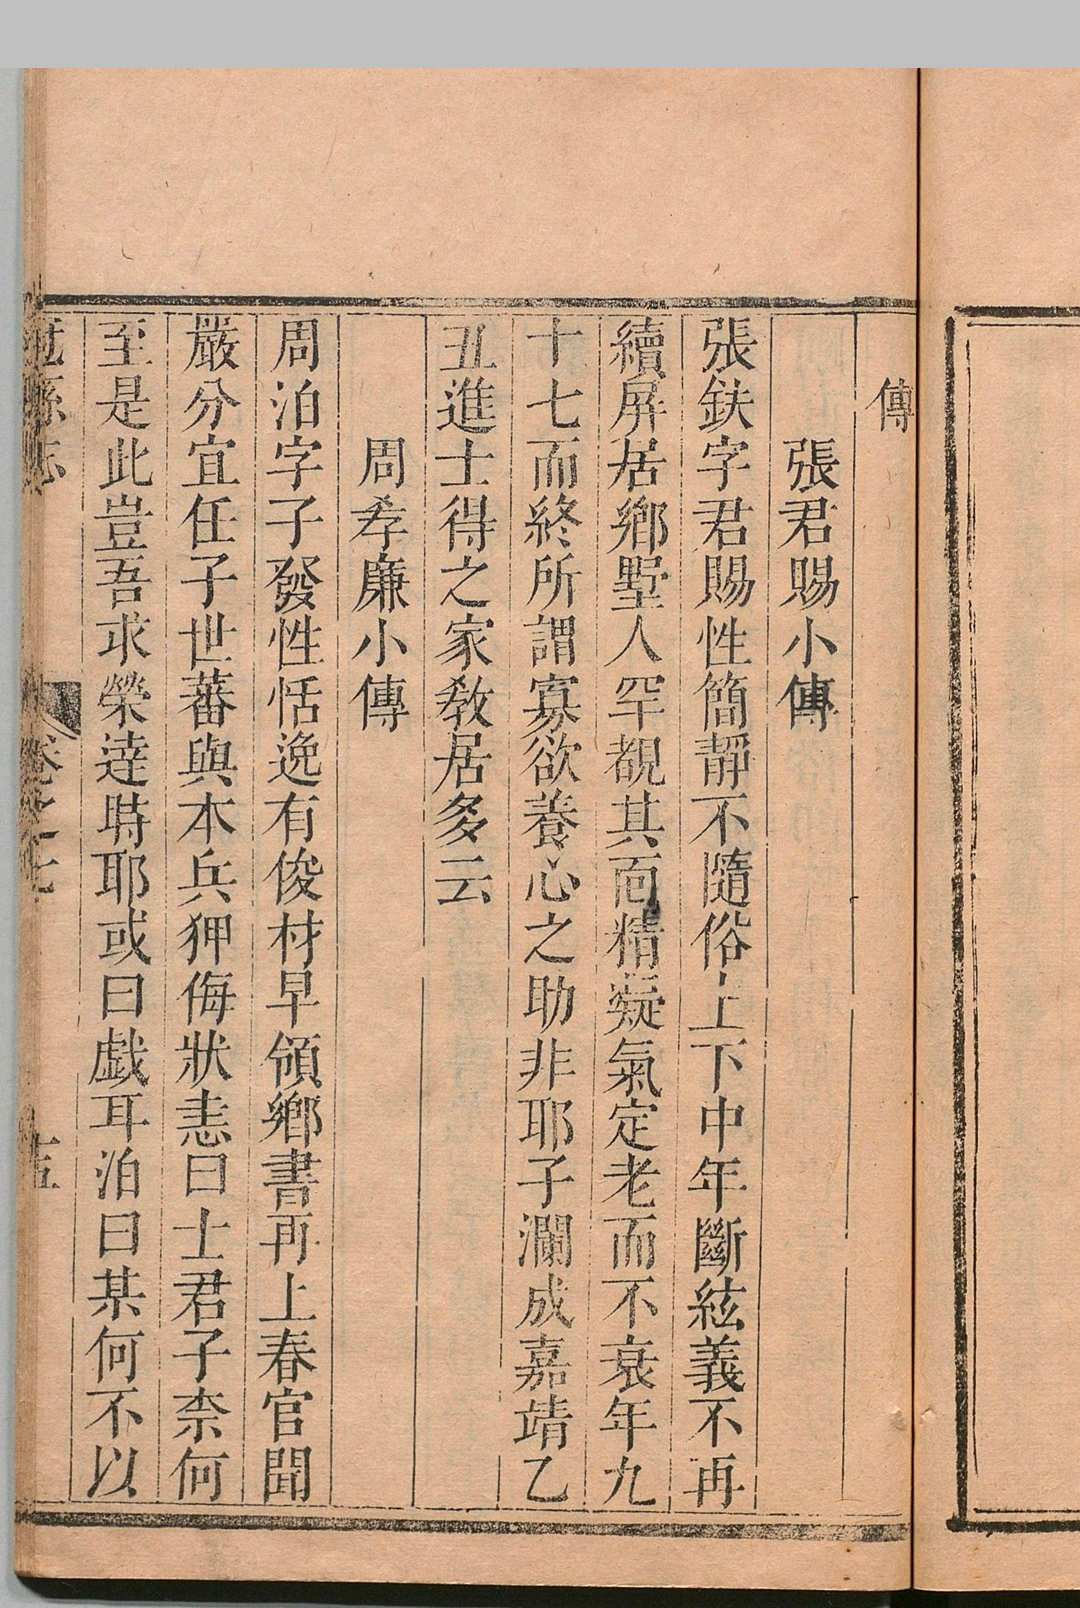 傳
張君賜小傳
張鈇字君賜性簡靜不隨俗上下中年斷絃義不再
續屏居鄉墅人罕覩其面精凝氣定老而不衰年九
十七而終所謂寡欲養心之助非耶子瀾成嘉靖乙
丑進士得之家敎居多云
周孝廉小傳
周泊字子發性恬逸有俊材早領鄉書再上春官聞
嚴分宜任子世蕃與本兵狎侮狀恚曰士君子柰何
至是此豈吾求榮達時耶或曰戯耳泊曰某何不以
縣志
卷之七
十五